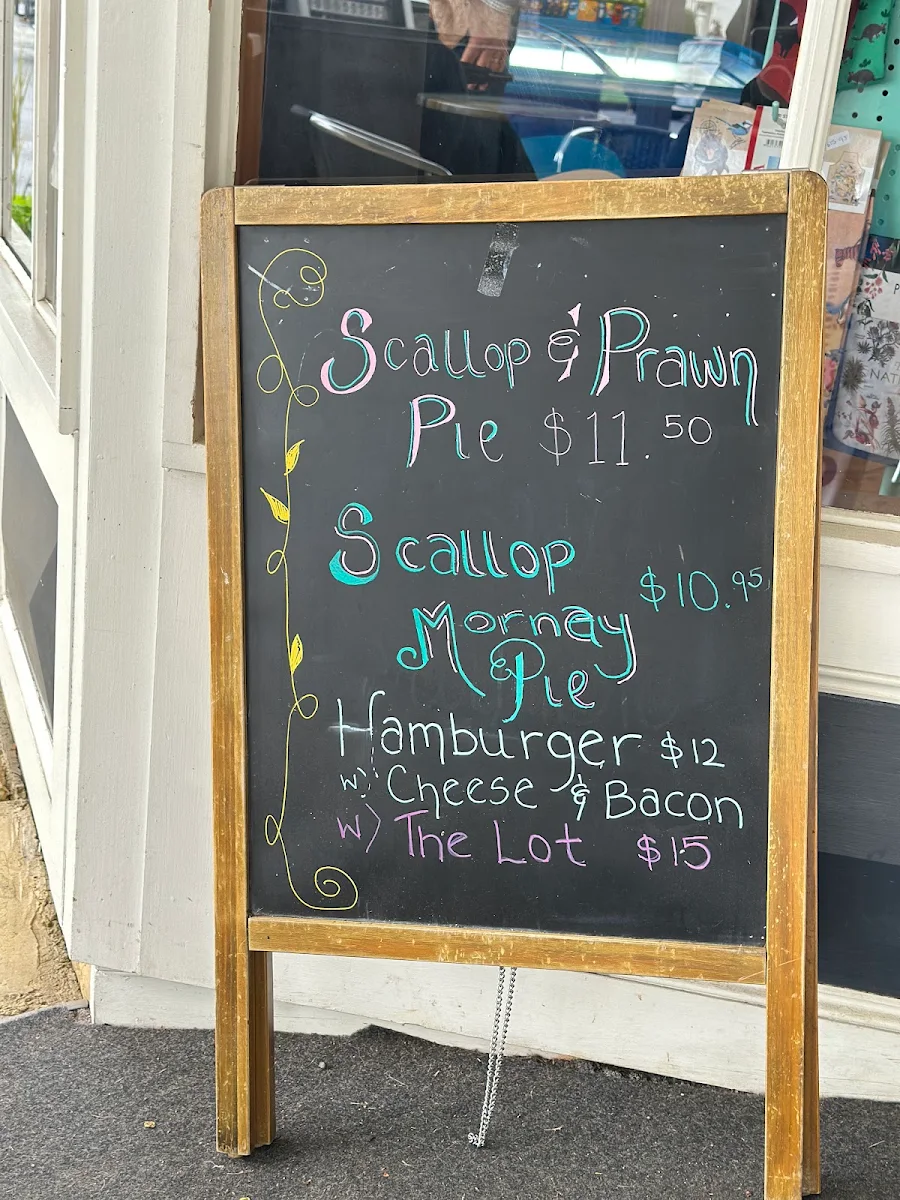 Scallop & Prawn
Pie $11.50
Scallop
Mornay $10.95
Pie
Hamburger $12
w) Cheese & Bacon
w) The Lot $15